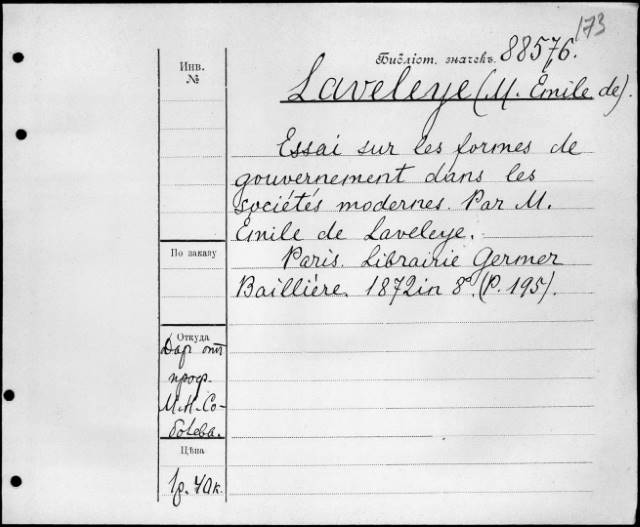 173
Библіот. значекъ 88576.
Инв.
№
Laveleye (M. Emile de).
Essai sur les formes de
gouvernement dans les
sociétés modernes. Par M.
Emile de Laveleye.
По заказу
Paris. Librairie Germer
Baillière. 1872 in 8°. (P. 195).
Откуда
Даръ отъ
проф.
М.Н. Со-
болева.
Цѣна
1р. 40к.